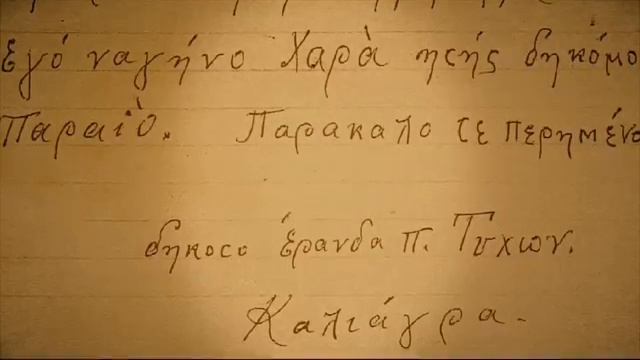 Εγό ναγήνο Χαρὰ ησής δηκόμο
Παραιὸ. Παρακαλο τε περημένο
δηκοσο έρανδα π. Τυχων.
Καλιάγρα.